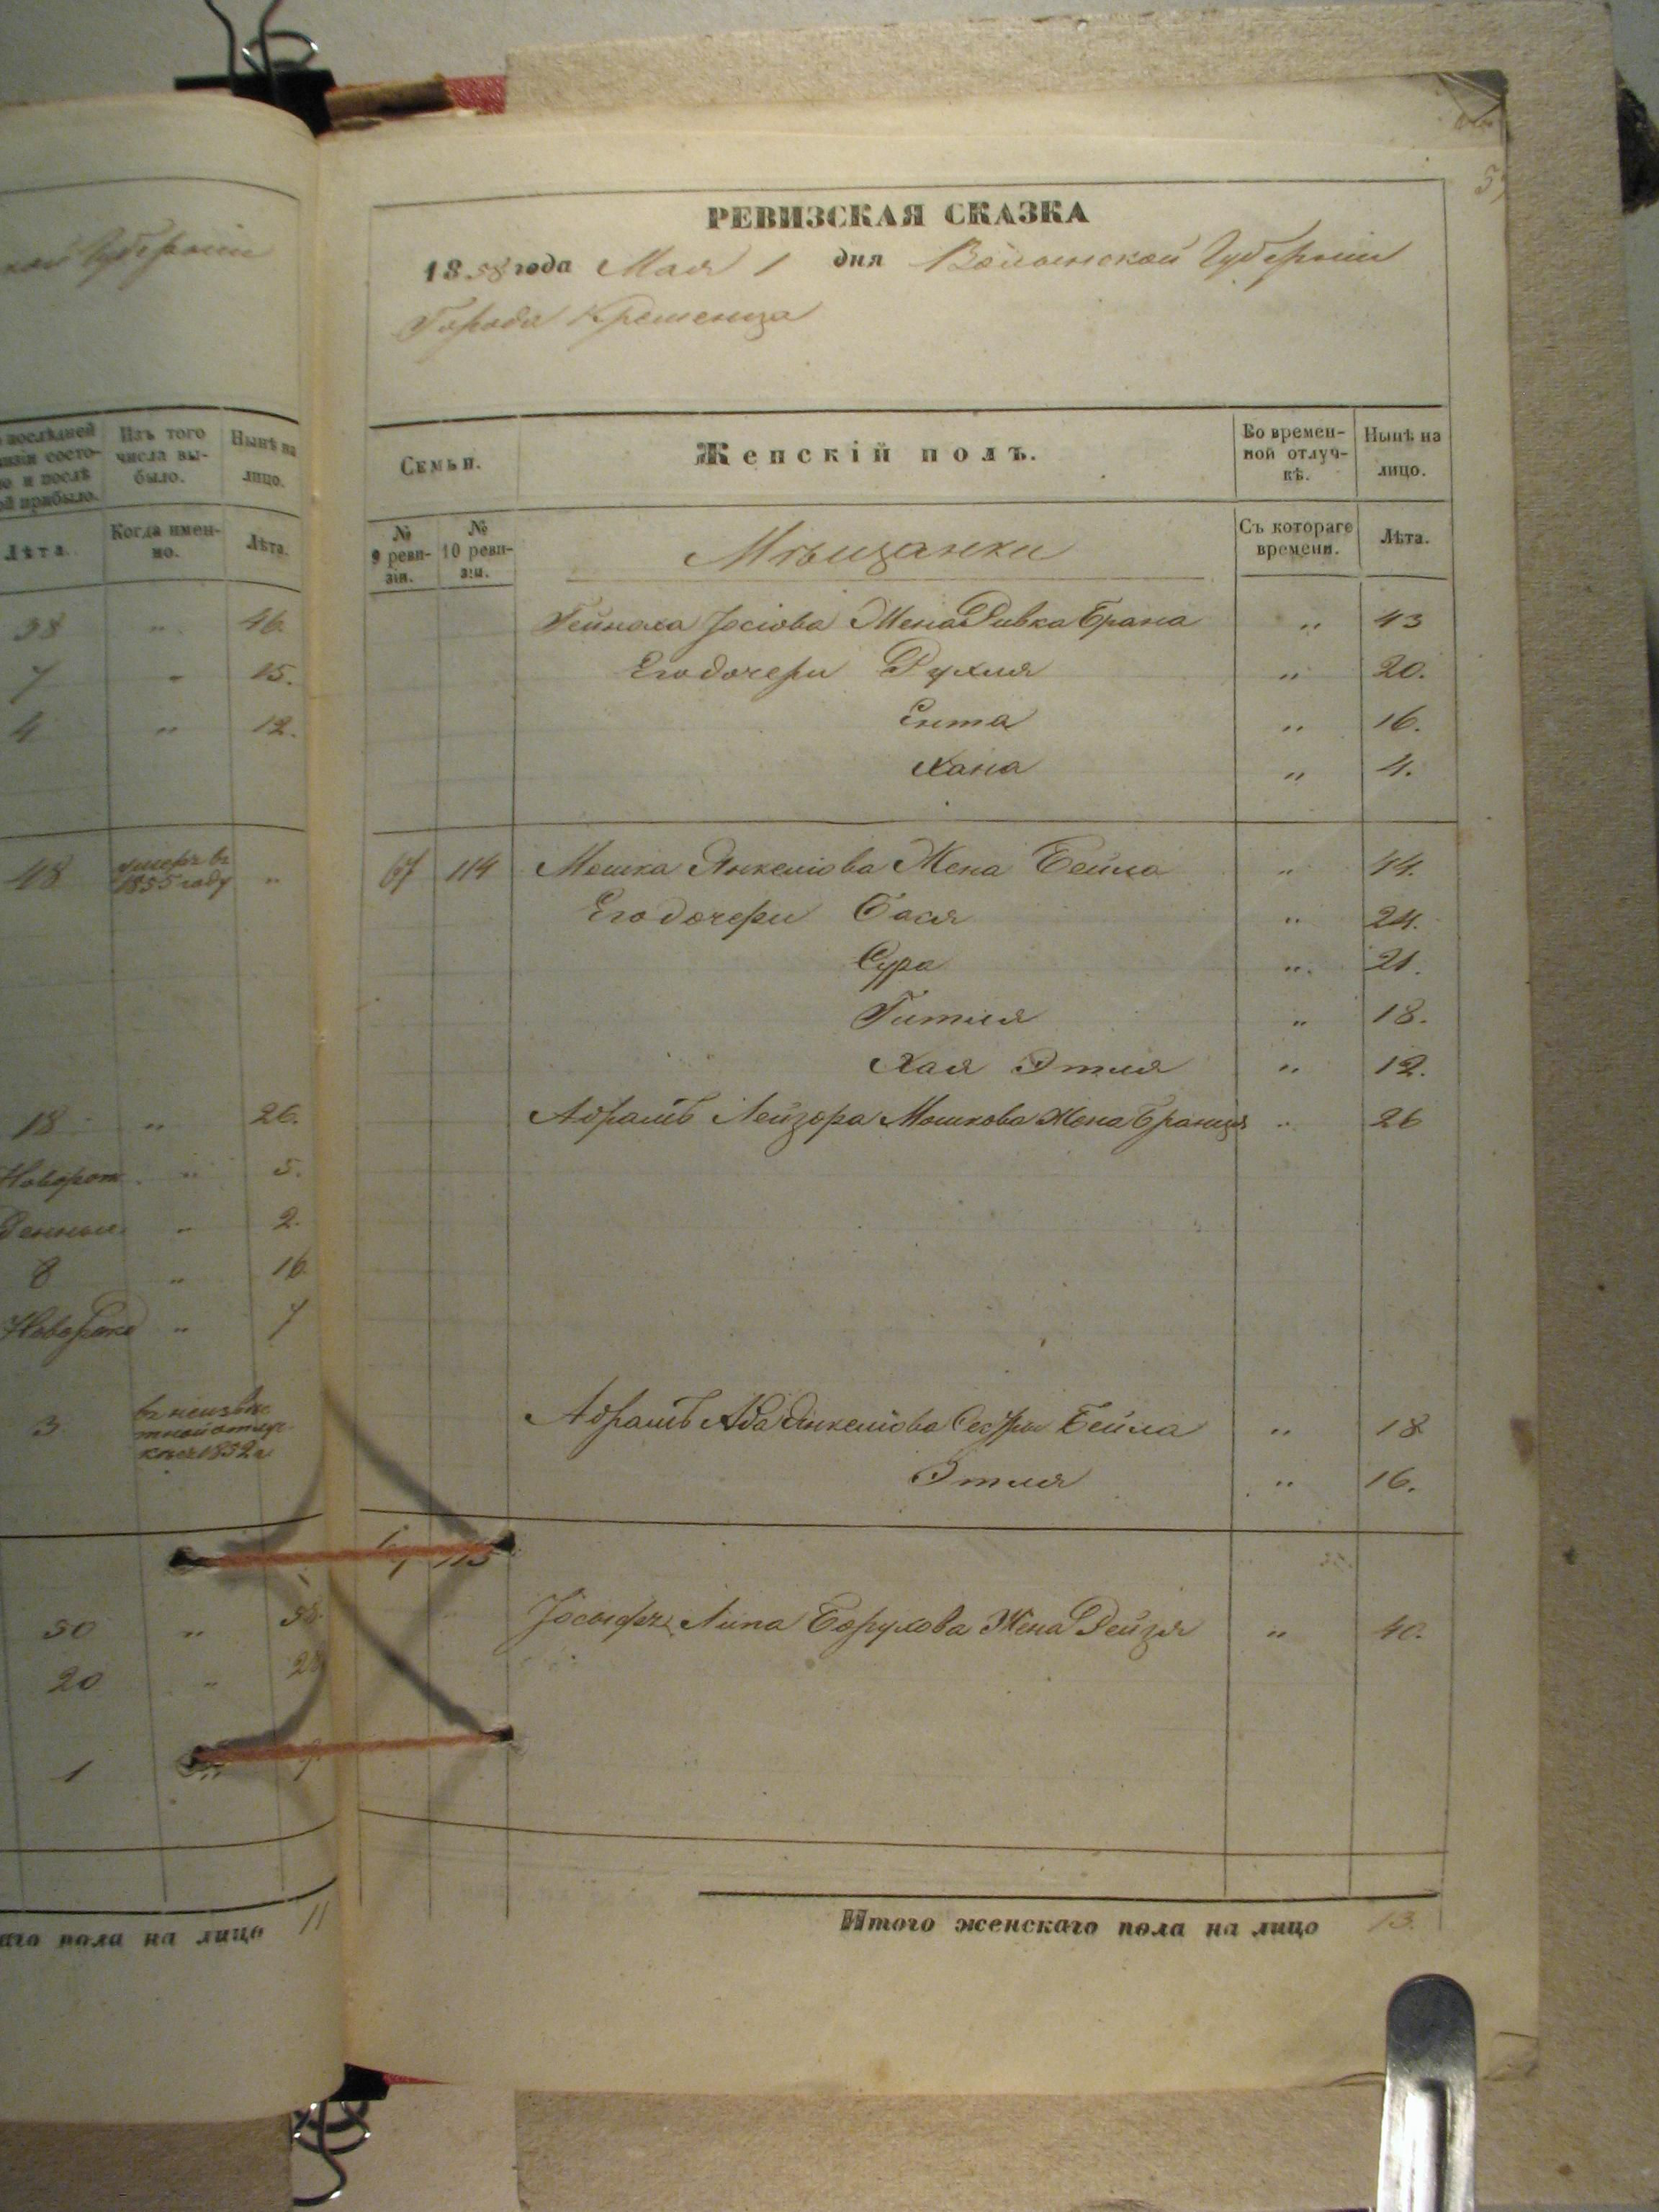 кой Губерніи
послѣдней
состо-
и послѣ
прибыло.
Изъ того
числа вы-
было.
Нынѣ на
лицо.
Лѣта.
Когда имен-
но.
Лѣта.
38 " 46.
7 " 15.
4 " 12.
48 умеръ въ
1855 году "
18 " 26.
Новорож " 5.
денные " 2.
8 " 16
" 7
3 въ неизвѣс
тной отлуч
кѣ съ 1852 г
50 "
20 "
1
пола на лицо 11
РЕВИЗСКАЯ СКАЗКА
1858 года Мая 1 дня Волынской Губерніи
Города Кременца
Семьи.
Женскій полъ.
Во времен-
ной отлуч-
кѣ.
Нынѣ на
лицо.
№
9 реви-
зіи.
№
10 реви-
зіи.
Мѣщанки
Съ котораго
времени.
Лѣта.
Гейноха Іосіова Жена Ривка Брана " 43
Его дочери Рухля " 20.
Ента " 16.
Хана " 4.
67 114 Мошка Янкеліова Жена Бейла " 44.
Его дочери Бася " 24.
Сура " 21.
Гитля " 18.
Хая Этля " 12.
Абрамъ Лейзора Мошкова Жена Бранця " 26
Абрамъ Аба Янкеліова Сестры Бейла " 18
Этля " 16.
115
Іосифъ Липа Борухова Жена Рейзя " 40.
Итого женскаго пола на лицо 13.